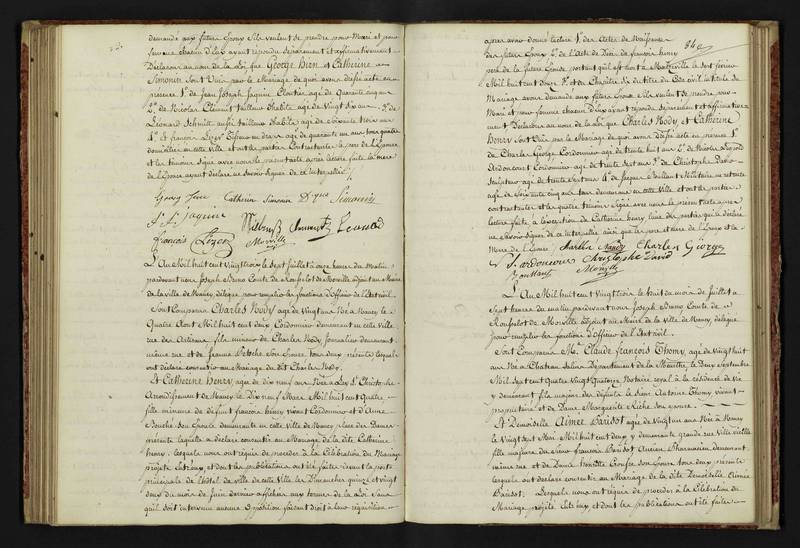 demandé aux futurs Epoux s'ils veulent se prendre pour Mari et pour
femme chacun d'eux ayant répondu séparément et affirmativement
Déclarons au nom de la Loi que George Hirn et Catherine
Simonin sont Unis par le Mariage de quoi avons dressé acte en
présence 1° de Jean Joseph Jaquiné Cloutier agé de Quarante cinq ans
2° de Nicolas Clement tailleur d'habits agé de Vingt dix ans 3° de
Léonard Schmitt aussi tailleur d'habits agé de soixante trois ans
4° et françois Lozer agé de quarante un ans tous quatre
domiciliés en cette ville et ont les parties Contractantes le pere de l'Epouse
et les témoins signé avec nous le présent acte après lecture faite la mere
de l'Epouse ayant déclaré ne savoir signer de ce Interpellée
Georg Catherine Simonin Simonin
J. J. Jaquiné
Leonard
françois Lozer Morville
L'An Mil huit cent Vingt trois le sept juillet à onze heures du Matin
pardevant nous Joseph Bruno Comte de Rousselot de Morville adjoint au Maire
de la ville de Nancy, délégué pour remplir les fonctions d'officier de l'Etat civil
Sont Comparus Charles Nody agé de Vingt un ans Né à Nancy le
Quatre Aout Mil huit cent deux Cordonnier demeurant en cette ville
rue des Artisans fils mineur de Charles Nody Journalier demeurant
même rue et de Jeanne Petoche son Epouse tous deux présents lesquels
ont déclaré consentir au Mariage du dit Charles Nody.
Et Catherine Henry, agée de dix neuf ans Née à Ley St Christophe
Arrondissement de Nancy le Dix neuf Mars Mil huit cent Quatre
fille mineure de défunt françois henry vivant Cordonnier et d'Anne
son Epouse demeurante en cette Ville de Nancy place des Dames
présente laquelle a déclaré consentir au Mariage de la dite Catherine
henry, lesquels nous ont réquis de proceder à la Célébration du Mariage
projeté entre eux et dont les publications ont été faites devant la porte
principale de l'hôtel de ville de cette ville les Dimanches quinze et vingt
deux du mois de Juin dernier affichées aux termes de la Loi. sans
qu'il soit intervenu aucune opposition faisant droit à leur requisition
84
après avoir donné lecture 1° des Actes de Naissance
des futurs Epoux 2° de l'Acte de Décès de francois henry
pere de la future Epouse, portant qu'il est mort à Maxeville le sept fevrier
Mil huit cent douze 3° et du Chapitre six du titre du Code civil intitulé du
Mariage avons demandé aux futurs Epoux s'ils veulent se prendre pour
Mari et pour femme chacun d'eux ayant répondu séparément et affirmative
ment Déclarons au nom de la loi que Charles Nody et Catherine
Henry sont Unis par le Mariage de quoi avons dressé acte en présence 1°
de Charles George Cordonnier agé de trente huit ans 2° de Nicolas
Ardoncourt Cordonnier agé de trente six ans 3° de Christophe David
Sculpteur agé de trente sept ans 4° de Jaque Militaire en retraite
agé de soixante cinq ans tous demeurant en cette ville et ont les parties
contractantes et les quatre témoins signé avec nous le présent acte après
lecture faite, à l'exception de Catherine henry l'une des parties qui a déclaré
ne savoir signer de ce interpellée ainsi que les pere et mere de l'Epoux et la
Mere de l'Epouse. Charles Naudy Charles George
N. ardoncour Christophe David
Morville
L'An Mil huit cent Vingt trois le huit du mois de Juillet à
sept heures du matin pardevant nous Joseph Bruno Comte de
Rousselot de Morville adjoint au Maire de la Ville de Nancy, délégué
pour remplir les fonctions d'officier de l'Etat civil
Sont Comparus Mr. Claude françois Thomy, agé de Vingt huit
ans Né à Chateau Salins Département de la Meurthe, le Deux Septembre
Mil Sept cent Quatre Vingt Quatorze Notaire royal à la résidence de Vic
y demeurant fils majeur des défunts le sieur Antoine Thomy vivant
propriétaire et de Dame Marguerite Riche son épouse
Et Demoiselle Aimée Barisot agée de Vingt un ans Née à Nancy
le Vingt sept Mai Mil huit cent deux y demeurante grande rue Ville vieille
fille majeure du sieur françois Barisot Ancien Pharmacien demeurant
même rue et de Dame son Epouse tous deux présents
lesquels ont déclaré consentir au Mariage de la dite Demoiselle Aimée
Barisot. Lesquels nous ont requis de proceder à la Célébration du
Mariage projeté entre eux et dont les publications ont été faites